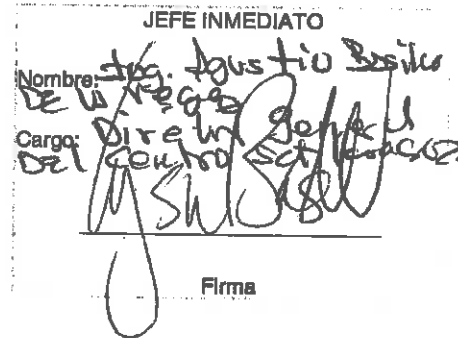 JEFE INMEDIATO
Nombre: Ing. Agustin Basilio
DE la Vega
Cargo: Director General
DEL Centro SCT Veracruz
Firma